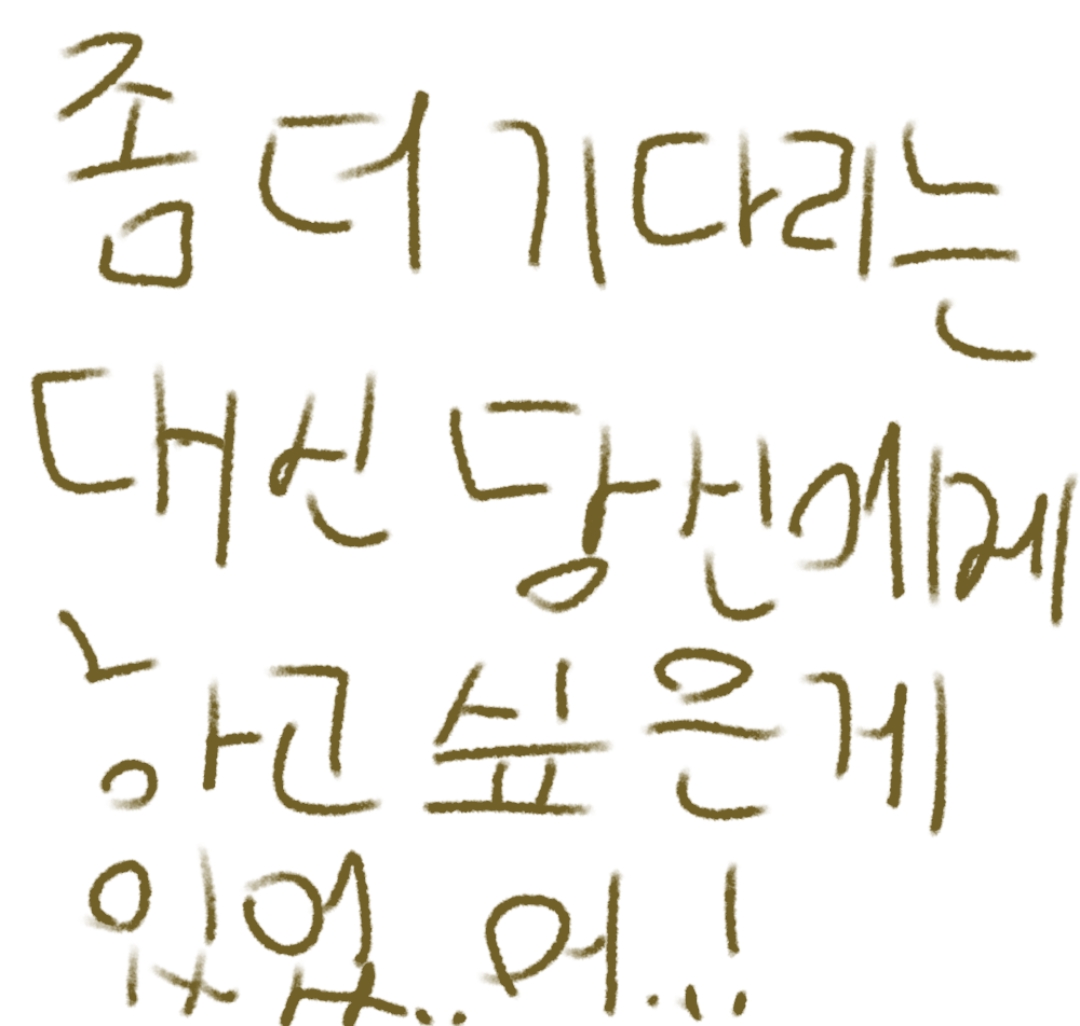 좀 더 기다리는
대신 당신에게
낭고 싶은게
있었..어..!